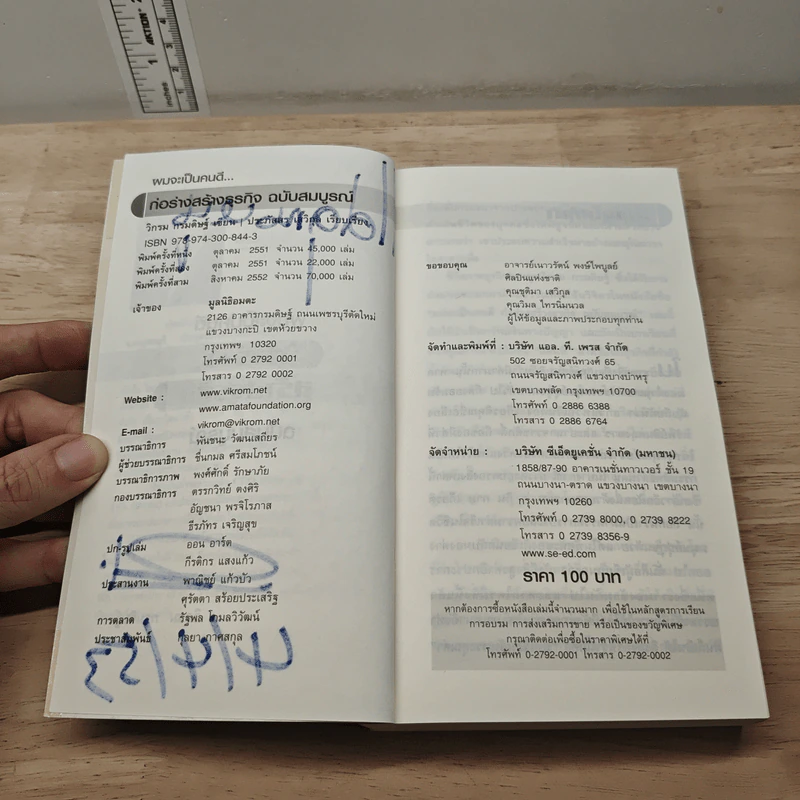 ผมจะเป็นคนดี...
ก่อร่างสร้างธุรกิจ ฉบับสมบูรณ์
วิกรม กรมดิษฐ์ เขียน | ประภัสสร เสวิกุล เรียบเรียง
ISBN 978-974-300-844-3
พิมพ์ครั้งที่หนึ่ง ตุลาคม 2551 จำนวน 45,000 เล่ม
พิมพ์ครั้งที่สอง ตุลาคม 2551 จำนวน 22,000 เล่ม
พิมพ์ครั้งที่สาม สิงหาคม 2552 จำนวน 70,000 เล่ม
เจ้าของ มูลนิธิอมตะ
2126 อาคารกรมดิษฐ์ ถนนเพชรบุรีตัดใหม่
แขวงบางกะปิ เขตห้วยขวาง
กรุงเทพฯ 10320
โทรศัพท์ 0 2792 0001
โทรสาร 0 2792 0002
Website : www.vikrom.net
www.amatafoundation.org
E-mail : vikrom@vikrom.net
บรรณาธิการ พันชนะ วัฒนเสถียร
ผู้ช่วยบรรณาธิการ ชื่นกมล ศรีสมโภชน์
บรรณาธิการภาพ พงศ์ศักดิ์ รักษาภัย
กองบรรณาธิการ ตรรกวิทย์ ตงศิริ
อัญชนา พรจิโรภาส
ธีรภัทร เจริญสุข
ปก-รูปเล่ม ออน อาร์ต
กีรติกร แสงแก้ว
ประสานงาน พาณิชย์ แก้วบัว
ศุรัตตา สร้อยประเสริฐ
การตลาด รัฐพล โกมลวิวัฒน์
ประชาสัมพันธ์ กาศสกุล
4/4/53
ขอขอบคุณ อาจารย์เนาวรัตน์ พงษ์ไพบูลย์
ศิลปินแห่งชาติ
คุณชุติมา เสวิกุล
คุณวิมล ไทรนิ่มนวล
ผู้ให้ข้อมูลและภาพประกอบทุกท่าน
จัดทำและพิมพ์ที่ : บริษัท แอล. ที. เพรส จำกัด
502 ซอยจรัญสนิทวงศ์ 65
ถนนจรัญสนิทวงศ์ แขวงบางบำหรุ
เขตบางพลัด กรุงเทพฯ 10700
โทรศัพท์ 0 2886 6388
โทรสาร 0 2886 6764
จัดจำหน่าย : บริษัท ซีเอ็ดยูเคชั่น จำกัด (มหาชน)
1858/87-90 อาคารเนชั่นทาวเวอร์ ชั้น 19
ถนนบางนา-ตราด แขวงบางนา เขตบางนา
กรุงเทพฯ 10260
โทรศัพท์ 0 2739 8000, 0 2739 8222
โทรสาร 0 2739 8356-9
www.se-ed.com
ราคา 100 บาท
หากต้องการซื้อหนังสือเล่มนี้จำนวนมาก เพื่อใช้ในหลักสูตรการเรียน
การอบรม การส่งเสริมการขาย หรือเป็นของขวัญพิเศษ
กรุณาติดต่อเพื่อซื้อในราคาพิเศษได้ที่
โทรศัพท์ 0-2792-0001 โทรสาร 0-2792-0002